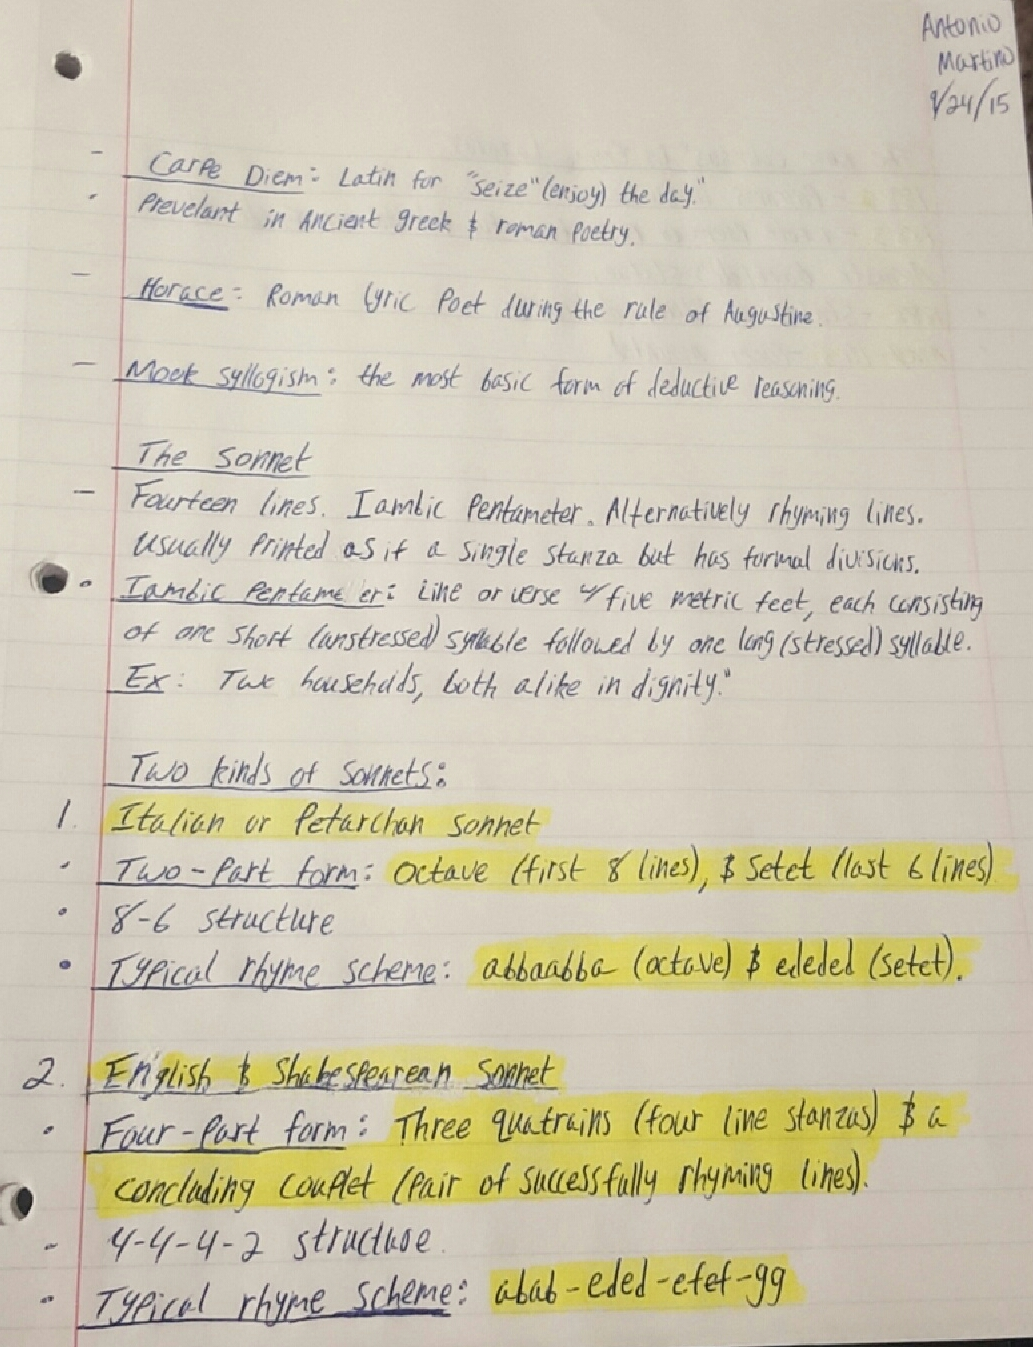 Antonio
Martino
9/24/15
- Carpe Diem: Latin for "seize" (enjoy) the day."
· Prevelant in Ancient greek & roman Poetry.
- Horace: Roman Lyric Poet during the rule of Augustine.
- Mock syllogism: the most basic form of deductive reasoning.
The Sonnet
- Fourteen lines. Iambic Pentameter. Alternatively rhyming lines.
usually Printed as if a single stanza but has formal divisions.
• Iambic Pentameter: Line or verse w/ five metric feet, each consisting
of one short (unstressed) syllable followed by one long (stressed) syllable.
Ex: Two households, both alike in dignity."
Two kinds of Sonnets:
1. Italian or Petarchan sonnet
· Two-Part form: octave (first 8 lines), & Setet (last 6 lines)
• 8-6 structure
• Typical rhyme scheme: abbaabba (octave) & ededed (setet).
2. English & Shakespearean Sonnet
• Four-Part form: Three quatrains (four line stanzas) & a
concluding couplet (pair of successfully rhyming lines).
- 4-4-4-2 structure.
• Typical rhyme scheme: abab-eded-efef-gg